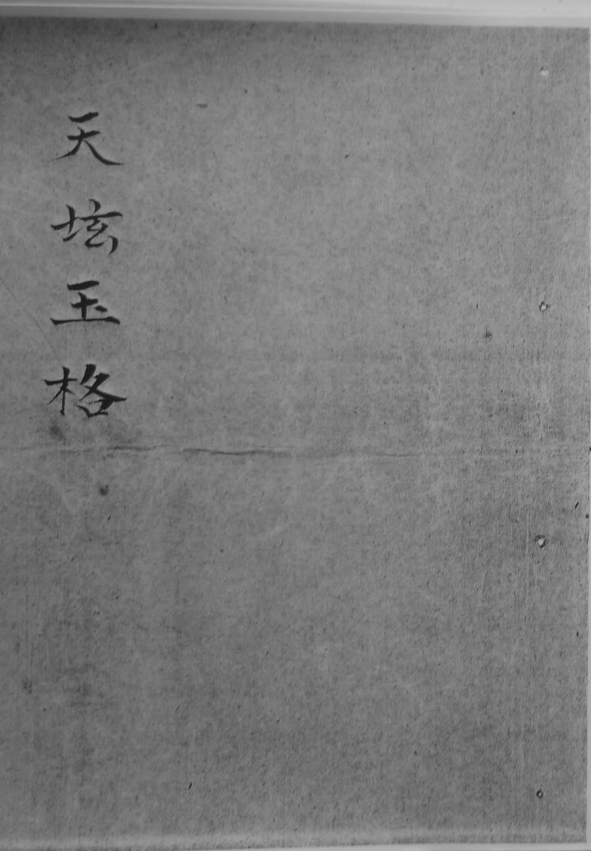 天坛玉格